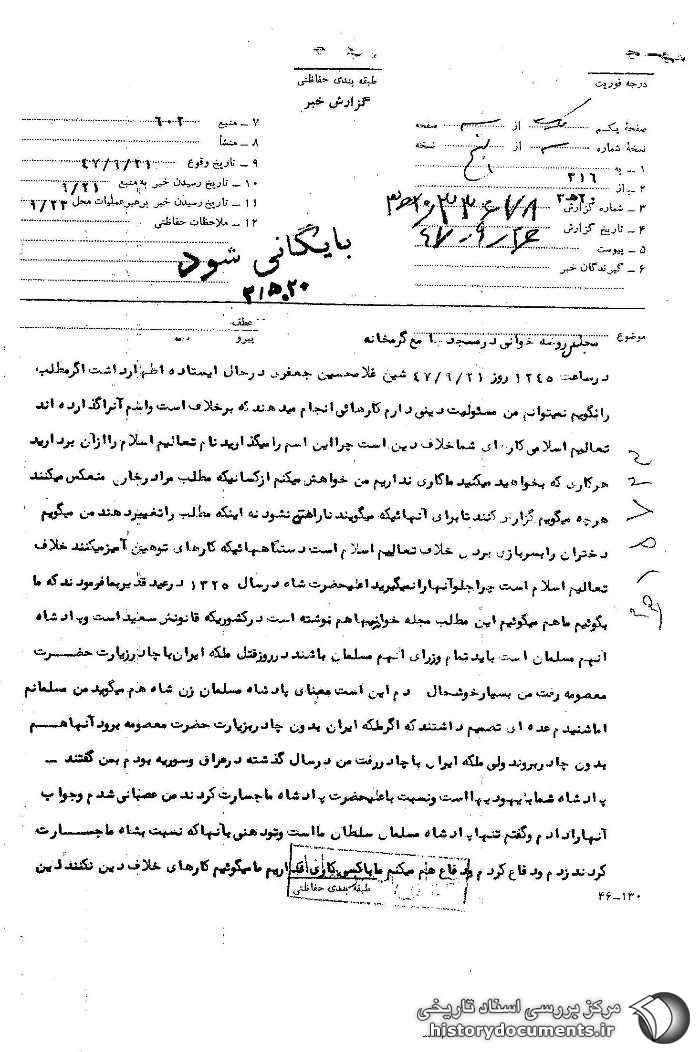 درجه فوریت
طبقه بندی حفاظتی
گزارش خبر
صفحه یکم از صفحه
نسخه شماره از پنج نسخه
۱ ـ به ۳۱۶
۲ ـ از
۳ ـ شماره گزارش
۴ ـ تاریخ گزارش
۵ ـ پیوست
۶ ـ گیرندگان خبر
۷ ـ منبع ۶۰۲
۸ ـ منشأ
۹ ـ تاریخ وقوع ۴۷/۶/۲۱
۱۰ ـ تاریخ رسیدن خبر به منبع ۶/۲۱
۱۱ ـ تاریخ رسیدن خبر برهبر عملیات محل ۶/۲۳
۱۲ ـ ملاحظات حفاظتی
بایگانی شود
عطف
پیرو
موضوع مجلس روضه خوانی در مسجد جامع گرمخانه
در ساعت ۱۲۴۵ روز ۴۷/۶/۲۱ شیخ غلامحسین جعفری در حال ایستاده اظهار داشت اگر مطلب
را نگویم نمیتوانم من مسئولیت دینی دارم کارهائی انجام میدهند که بر خلاف است و اسم آنرا گذارده اند
تعالیم اسلامی کارهای شما خلاف دین است چرا این اسم را میگذارید نام تعالیم اسلام را از آن بردارید
هر کاری که بخواهید میکنید ما کاری نداریم من خواهش میکنم از کسانیکه مطلب مرا در خارج منعکس میکنند
هر چه میگویم گزارش کنند تا برای آنهائیکه میگویند ناراحتی نشود نه اینکه مطلب را تغییر دهند من میگویم
دختران را بسربازی بردن خلاف تعالیم اسلام است دستگاههائیکه کارهای توهین آمیز میکنند خلاف
تعالیم اسلام است چرا جلو آنها را نمیگیرید اعلیحضرت شاه در سال ۱۳۲۵ در عید غدیر بما فرمودند که ما
بگوئیم ما هم میگوئیم این مطلب مجله خوانیها هم نوشته است در کشوریکه قانونش سعید است و پادشاه
آنهم مسلمان است باید تمام وزرای آنهم مسلمان باشند در روز قتل ملکه ایران با چادر زیارت حضرت
معصومه رفت من بسیار خوشحال شدم این است معنای پادشاه مسلمان زن شاه هم میگوید من مسلمانم
اما شنیدم عده ای تصمیم داشتند که اگر ملکه ایران بدون چادر بزیارت حضرت معصومه برود آنها هم
بدون چادر بروند ولی ملکه ایران با چادر رفت من در سال گذشته در عراق و سوریه بودم بمن گفتند ـ
پادشاه شما با یهودیها است و نسبت با علیحضرت پادشاه ما جسارت کردند من عصبانی شدم و جواب
آنها را دادم و گفتم تنها پادشاه مسلمان سلطان ما است و تودهنی بآنها که نسبت بشاه ما جسارت
کردند زدم و دفاع کردم و دفاع هم میکنم ما با کسی کاری نداریم ما میگوئیم کارهای خلاف دین نکنند این
طبقه بندی حفاظتی
۴۶-۱۳۰
مرکز بررسی اسناد تاریخی
historydocuments.ir